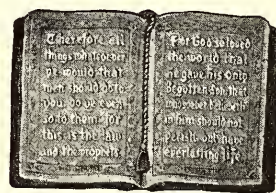 Therefore all
things whatsoever
ye would that
men should do to
you, do ye even
so to them: for
this is the law
and the prophets.
For God so loved
the world that
he gave his only
begotten Son that
whosoever believeth
in him should not
perish but have
everlasting life